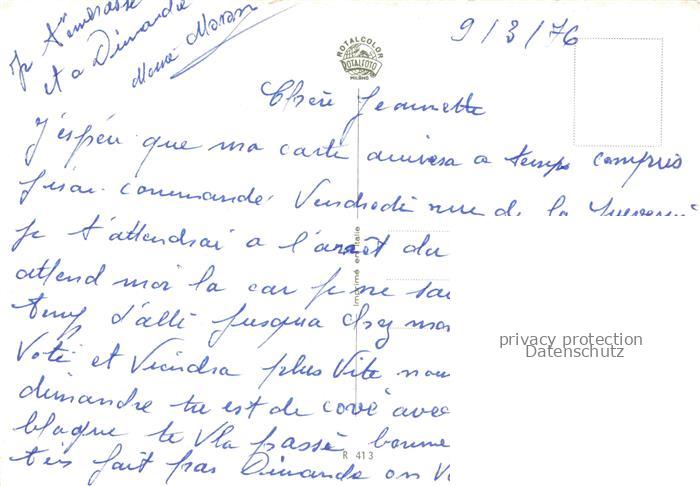 je t'embrasse
et a Dimanche
9/3/76
ROTALCOLOR
ROTALFOTO
MILANO
Chère Jeannette
J'espere que ma carte arrivera a temps compris
j'irai commande. Vendredi
je t'attendrai a l'arrêt du
attend moi la car je ne
temp d'allé jusqua chez moi
Voté et Viendra plus Vite
dimandre tu est de cové avec
blaque te Vla passé bonne
fait pas Dimande on V
Imprimé en Italie
R 413
privacy protection
Datenschutz